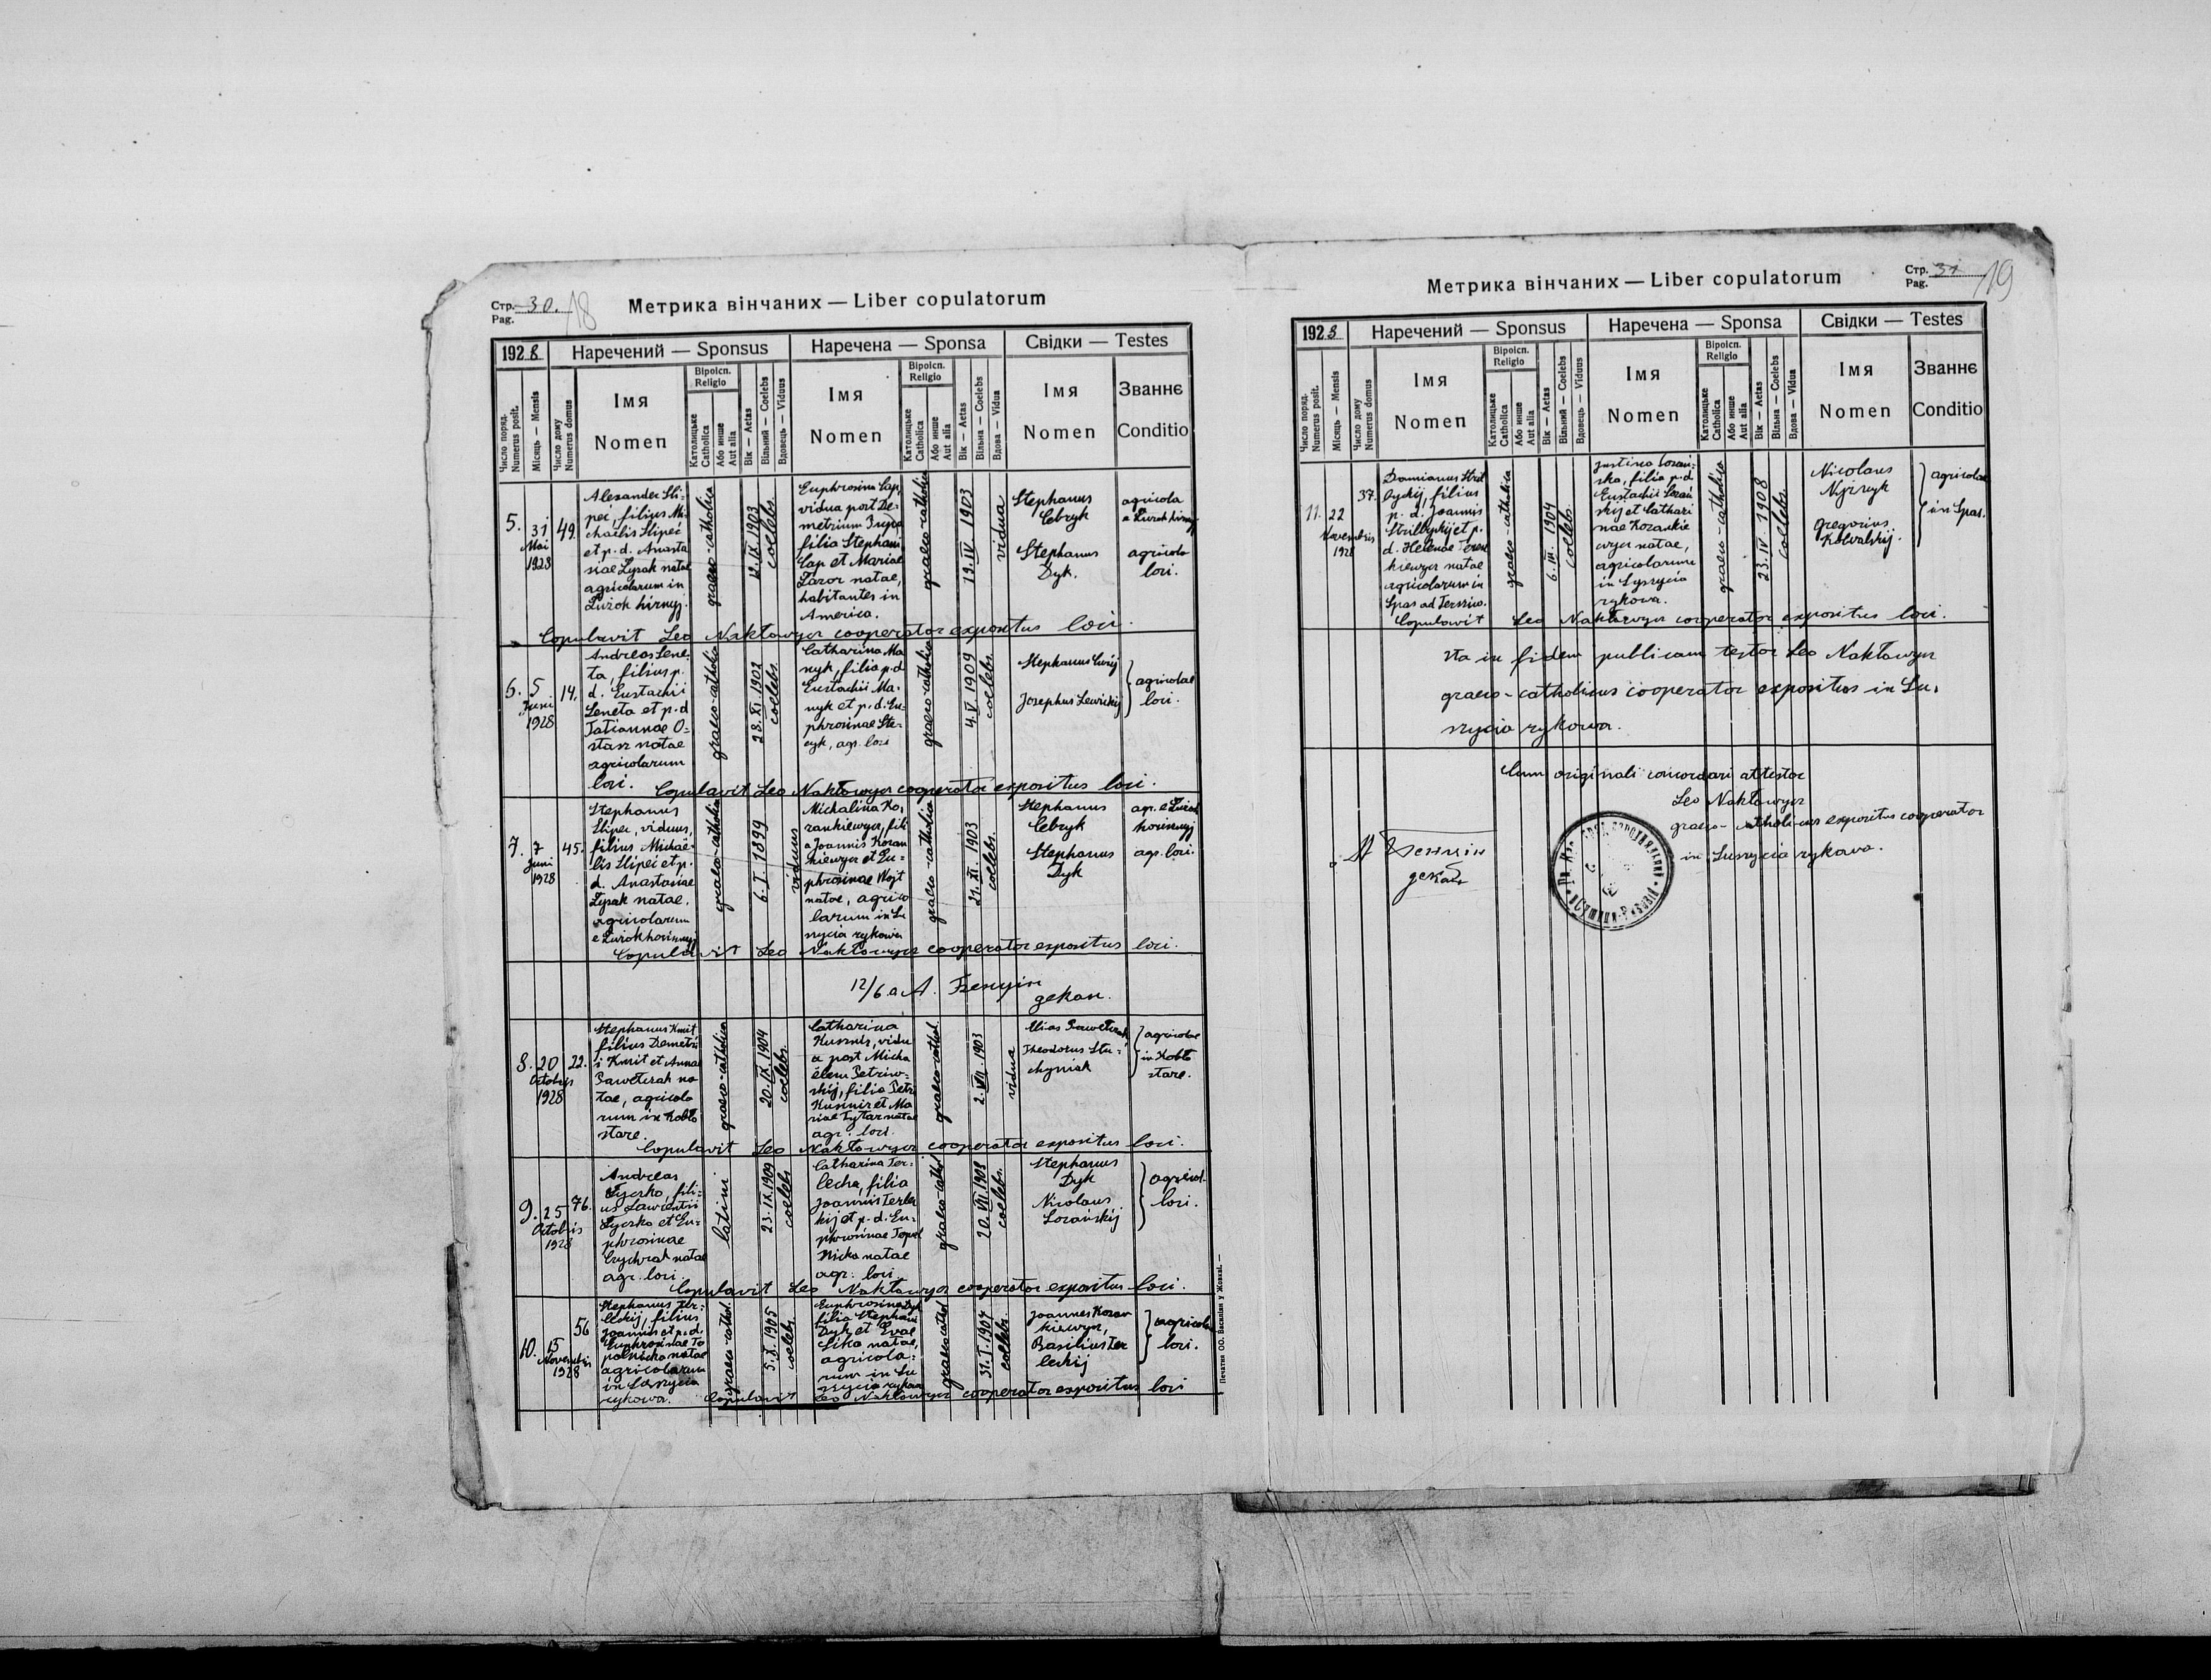 Стр. 30. 18
Pag.
Метрика вінчаних — Liber copulatorum
1928
Наречений — Sponsus
Наречена — Sponsa
Свідки — Testes
Число поряд.
Numerus posit.
Місяць — Mensis
Число дому
Numerus domus
Імя
Nomen
Віроісп.
Religio
Католицьке
Catholica
Або инше
Aut alia
Вік — Aetas
Вільний — Coelebs
Вдовець — Viduus
Імя
Nomen
Віроісп.
Religio
Католицьке
Catholica
Або инше
Aut alia
Вік — Aetas
Вільна — Coelebs
Вдова — Vidua
Імя
Nomen
Званнє
Conditio
5.
31
Mai
1928
49.
Alexander Sli-
peć, filius Mi-
chaelis Slipeć
et p. d. Anasta
siae Lysak natae
agricolarum in
Lużok hirnyj.
graeco-catholica
12.IX.1903
coelebs.
Euphrosina Cap,
vidua post De-
metrium
filia Stephani
Cap et Mariae
Lazor natae,
habitantes in
America.
graeco-catholica
19.IV.1903
vidua
Stephanus
Cebryk
Stephanus
Dyk.
agricola
e Lużok hirnyj
agricola
loci.
Copulavit Leo Nakławycz cooperator expositus loci.
6.
5
Juni
1928
14.
Andreas Sene-
ta, filius p.
d. Eustachii
Seneta et p. d
Tatiannae O-
stasz natae
agricolarum
loci.
graeco-catholica
28.XI.1902
coelebs.
Catharina Ma
nyk, filia p. d
Eustachii Ma-
nyk et p. d. Eu-
phrosinae Ste-
cyk, agr. loci
graeco-catholica
4.V.1909
coelebs.
Stephanus
Josephus Lewickij
agricolae
loci.
Copulavit Leo Nakławycz cooperator expositus loci.
7.
7
Juni
1928
45.
Stephanus
Slipec, viduus,
filius Michae-
lis Slipeć et p.
d. Anastasiae
Lysak natae,
agricolarum
e Lużok horisznyj
graeco-catholica
6.I.1899
viduus
Michalina Ko-
zankiewycz, fili
a Joannis Kozan
kiewycz et Eu-
phrosinae Wojt
natae, agrico
larum in Su
szycia rykowa
graeco-catholica
21.XI.1903
coelebs.
Stephanus
Cebryk
Stephanus
Dyk
agr. e Lużok
horisznyj
agr. loci.
Copulavit Leo Nakławycz cooperator expositus loci.
12/6
декан.
8.
20
Octobris
1928
22.
Stephanus Kmit
filius Demetri
i Kmit et Annae
Pawełczak na
tae, agricola
rum in Kobło
stare.
graeco-catholica
20.IX.1904
coelebs.
Catharina
Kusznir, vidu
a post Micha
ëlem Petriw-
skij, filia Petri
Kusznir et Ma
riae Tytar natae
agr. loci.
graeco-cathol
2.VII.1903
vidua
Elias Pawełczak
Theodorus Stu-
chyniak
agricolae
in Kobło
stare.
Copulavit Leo Nakławycz cooperator expositus loci.
9.
25
Octobris
1928
76.
Andreas
Łyczko, fili-
us Lawrentii
Łyczko et Eu-
phrosinae
natae
agr. loci.
latini
23.IX.1909
coelebs
Catharina Ter-
lecka, filia
Joannis Terlec
kij et p. d. Eu-
phrosinae Topol
nicka natae
agr. loci.
graeco-cathol
20.VII.1908
coelebs.
Stephanus
Dyk
Nicolaus
Łozańskij
agricol.
loci.
Copulavit Leo Nakławycz cooperator expositus loci.
10.
15
Novembris
1928
56
Stephanus Ter-
leckij, filius
Joannis et p. d.
Euphrosinae To
polnicka natae
agricolarum
in Suszycia
rykowa.
graeco-cathol.
5.X.1905
coelebs.
Euphrosina Dyk
filia Stephani
Dyk et Evae
Sika natae,
agricola-
rum in Su
szycia rykowa
graeco cathol
31.I.1907
coelebs.
Joannes Kozan
kiewycz,
Basilius Ter
leckij
agricolae
loci.
Copulavit Leo Nakławycz cooperator expositus loci
Печатня ОО. Василіян у Жовкві. —
Стр. 31 19
Pag.
Метрика вінчаних — Liber copulatorum
1928
Наречений — Sponsus
Наречена — Sponsa
Свідки — Testes
Число поряд.
Numerus posit.
Місяць — Mensis
Число дому
Numerus domus
Імя
Nomen
Віроісп.
Religio
Католицьке
Catholica
Або инше
Aut alia
Вік — Aetas
Вільний — Coelebs
Вдовець — Viduus
Імя
Nomen
Віроісп.
Religio
Католицьке
Catholica
Або инше
Aut alia
Вік — Aetas
Вільна — Coelebs
Вдова — Vidua
Імя
Nomen
Званнє
Conditio
11.
22
Novembris
1928
37.
Damianus Stril
byckij, filius
p. d. Joannis
Strilbyckij et p.
d. Helenae
natae
agricolarum in
Spas ad Terszow.
graeco-catholica
6.III.1904
coelebs.
Justina Łozań-
ska, filia p. d
Eustachii Łozań
skij et Cathari
nae Kozankie
wycz natae,
agricolarum
in Suszycia
rykowa.
graeco-catholica
23.IV.1908
coelebs.
Nicolaus
Gregorius
Kowalskij.
agricolae
in Spas.
Copulavit Leo Nakławycz cooperator expositus loci.
Ita in fidem publicam testor Leo Nakławycz
graeco-catholicus cooperator expositus in Su-
szycia rykowa.
Cum originali concordari attestor
Leo Nakławycz
graeco-catholicus expositus cooperator
in Suszycia rykowa.
декан